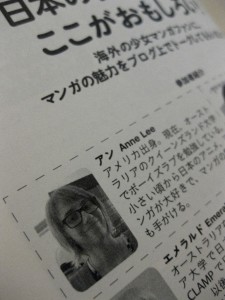 日本の
ここがおもしろい
海外の少女マンガファンに、
マンガの魅力をブログ上でトークして
アン Anne Lee
アメリカ出身。現在、オースト
ラリアのクイーンズランド大学
でボーイズラブを勉強している。
小さい頃から日本のアニメ、
ンガが大好きで、マンガの
も手がける。
エメラルド Emer
オーストラリア
ア大学で日
CLAMPで
以後